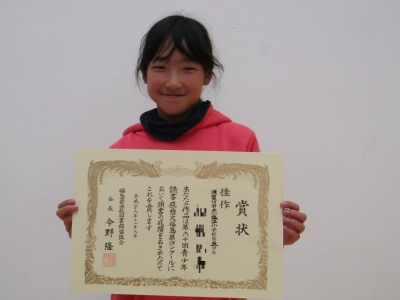 賞状
佳作
あなたの作品は第六十回青少年
読書感想文福島県コンクールに
おいて頭書の成績をおさめたので
これを賞します
平成二十六年十一月六日
福島県学校図書館協議会
会長 今野 隆